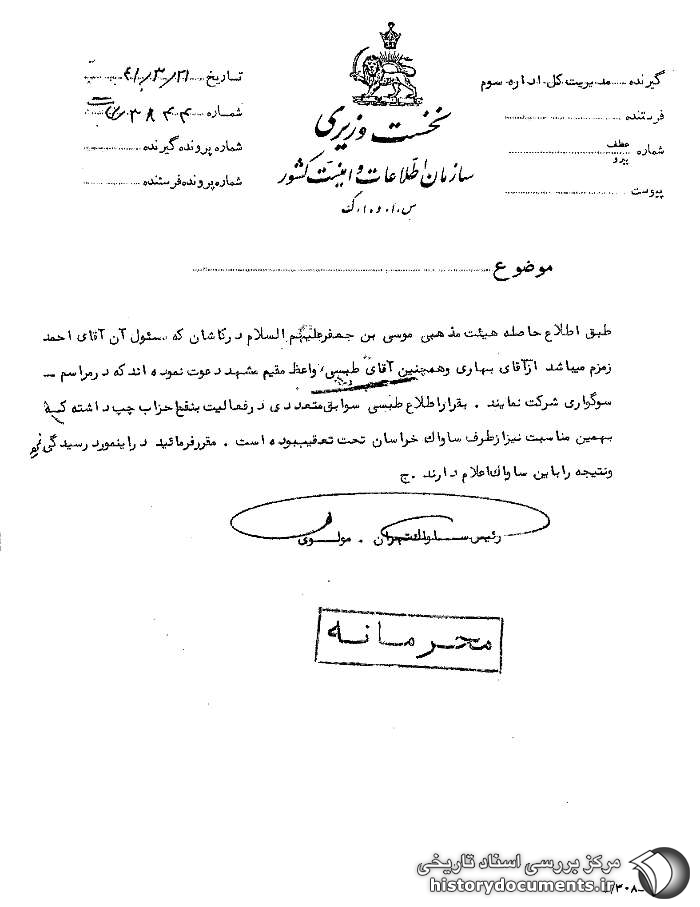 گیرنده مدیریت کل اداره سوم
فرستنده
شماره عطف پیرو
پیوست
نخست وزیری
سازمان اطلاعات و امنیت کشور
س.ا.و.ا.ک
تاریخ ۴۱/۳/۲۱
شماره ۳۸۴۴
شماره پرونده گیرنده
شماره پرونده فرستنده
موضوع
طبق اطلاع حاصله هیئت مذهبی موسی بن جعفر علیهم السلام در کاشان که مسئول آن آقای احمد
زمزم میباشد از آقای بهاری وهمچنین آقای طبسی واعظ مقیم مشهد دعوت نموده اند که در مراسم
سوگواری شرکت نمایند . بقرار اطلاع طبسی سوابق متعددی در فعالیت بنفع احزاب چپ داشته که
بهمین مناسبت نیز از طرف ساواك خراسان تحت تعقیب بوده است . مقرر فرمائید در اینمورد رسیدگی
ونتیجه را باین ساواك اعلام دارند . ج
رئیس ساواك تهران . مولوی
محرمانه
مرکز بررسی اسناد تاریخی
historydocuments.ir
۳۰۸